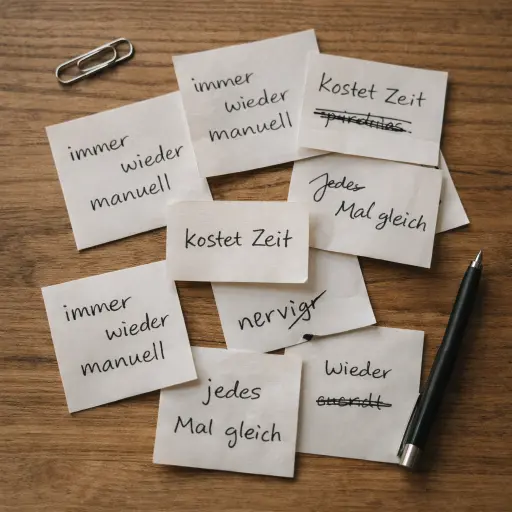 immer
wieder
manuell
kostet Zeit
immer
wieder
manuell
Jedes
Mal gleich
kostet Zeit
nervig
immer
wieder
manuell
Wieder
jedes
Mal gleich